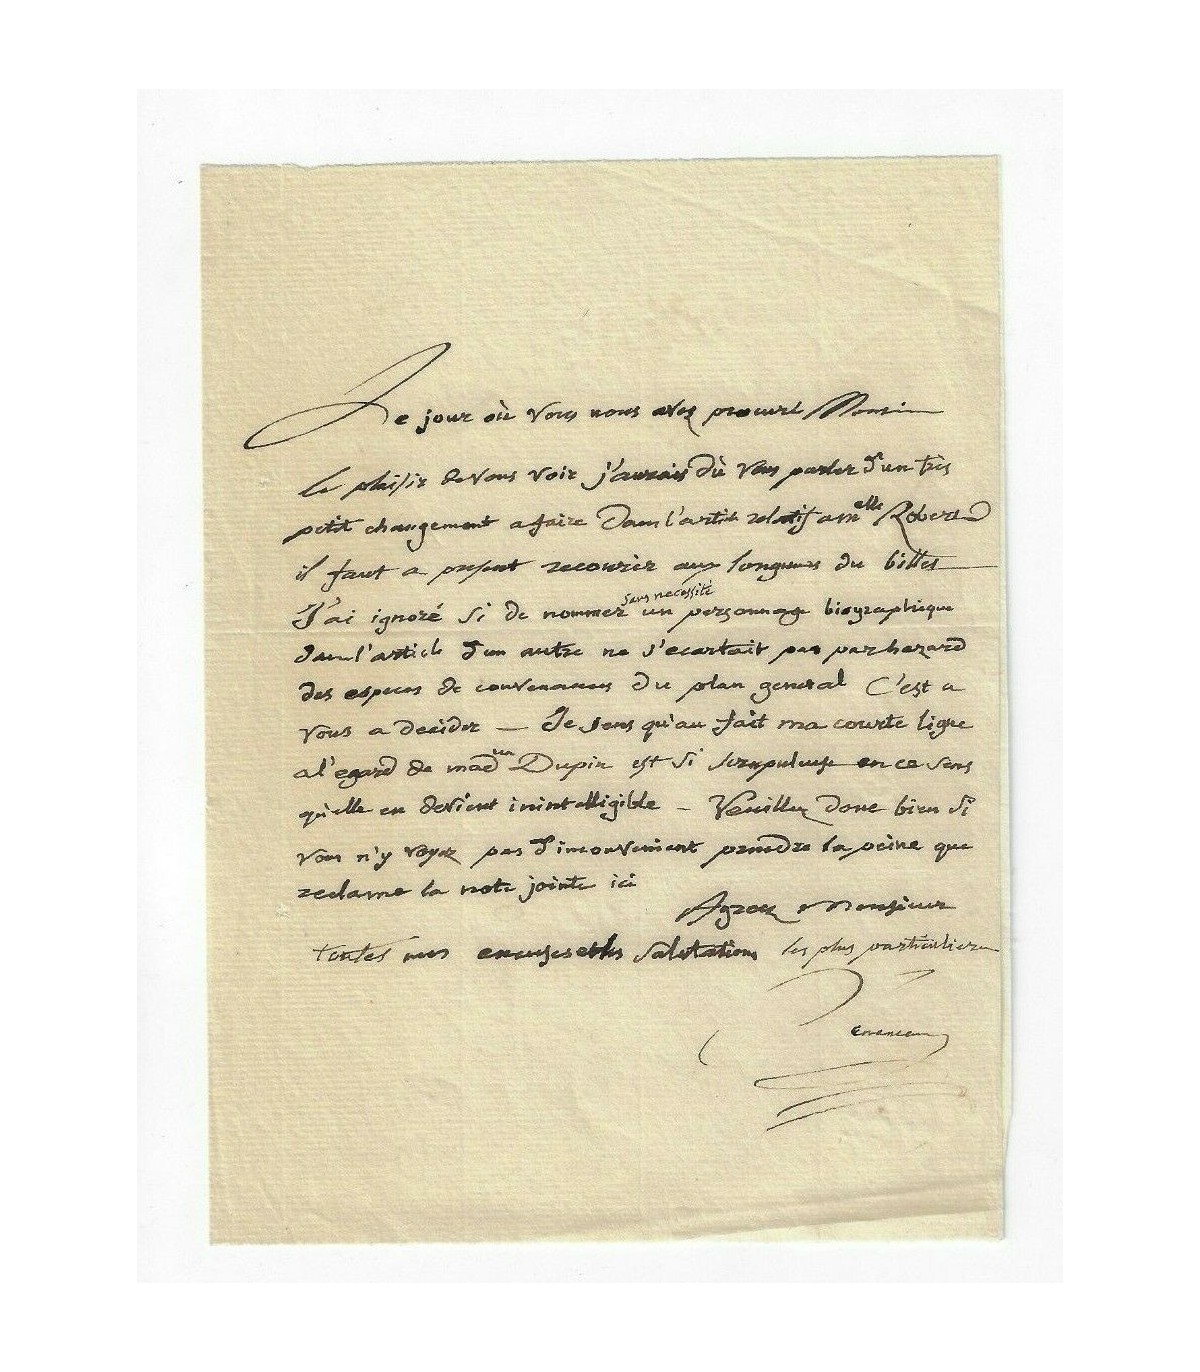 Le jour où vous nous avez procuré Monsieur
le plaisir de vous voir j'aurais dû vous parler d'un très
petit changement a faire dans l'article relatif a melle Robert
il faut a present recourir aux longueurs du billet
J'ai ignoré si de nommer sans necessité un personnage biographique
dans l'article d'un autre ne s'ecartait pas par hazard
des especes de convenances du plan general C'est a
vous a decider — Je sens qu'au fait ma courte ligne
a l'egard de mad Dupin est si scrupuleuse en ce sens
qu'elle en devient inintelligible — Veuillez donc bien si
vous n'y voyez pas d'inconvenient prendre la peine que
reclame la note jointe ici
Agreez Monsieur
toutes mes excuses et les salutations les plus particulieres